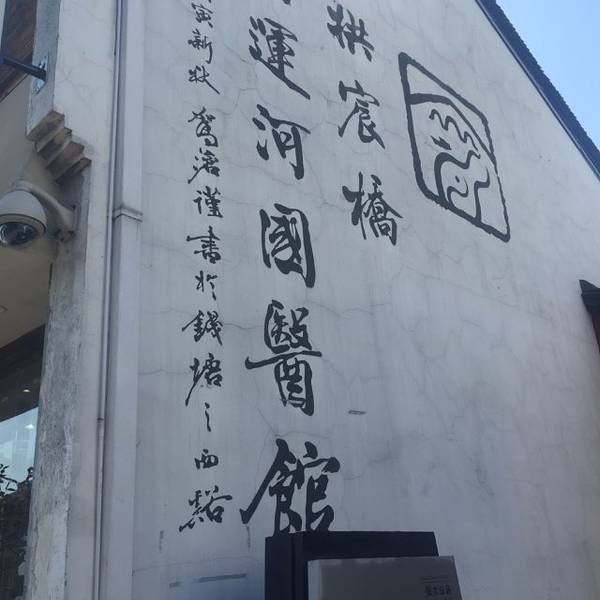 拱宸橋
運河國醫館
寅新秋 奮滄謹書於錢塘之西谿